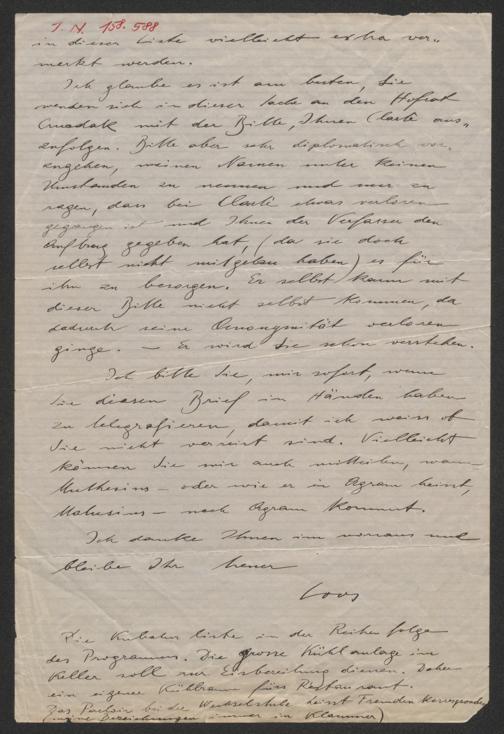 I. N. 158.588
in dieser Liste vielleicht extra ver-
merkt werden.
Ich glaube es ist am besten, Sie
wenden sich in dieser Sache an den Hofrat
mit der Bitte, Ihnen aus-
zufolgen. Bitte aber sehr diplomatisch vor-
zugehen, meinen Namen unter keinen
Umständen zu nennen und nur zu
sagen, dass bei etwas verloren
gegangen ist und Ihnen der Verfasser den
Auftrag gegeben hat, (da sie doch
selbst nicht mitgetan haben) es für
ihn zu besorgen. Er selbst kann mit
dieser Bitte nicht selbst kommen, da
dadurch seine Anonymität verloren
ginge. — Er wird Sie schon verstehen.
Ich bitte Sie, mir sofort, wenn
Sie diesen Brief in Händen haben
zu telegrafieren, damit ich weiss ob
Sie nicht verreist sind. Vielleicht
können Sie mir auch mitteilen, wann
Muthesius — oder wie er in Agram heisst,
Mahusius — nach Agram kommt.
Ich danke Ihnen im voraus und
bleibe Ihr treuer
Loos
Die Kubatur Liste in der Reihenfolge
des Programms. Die grosse Kühlanlage im
Keller soll zur Eisbereitung dienen. Daher
ein eigener Kühlraum fürs Restaurant.
Das bei der Wechselstube heisst Fremden Korrespondenz
(meine Bezeichnungen immer in Klammer)